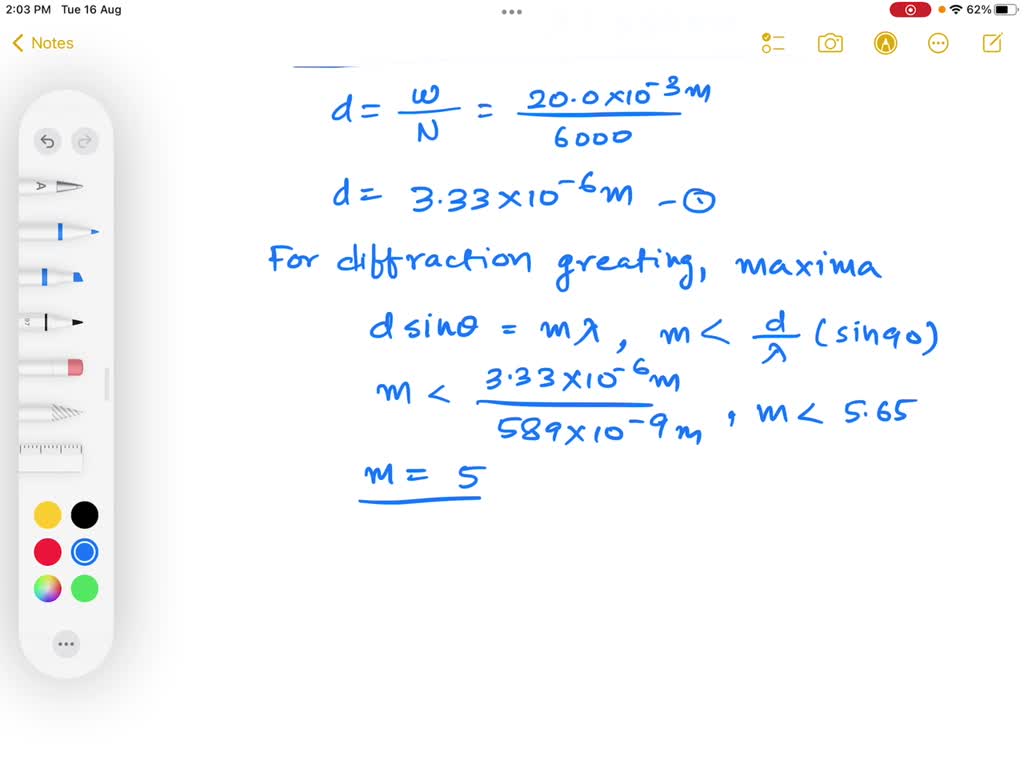 2:03 PM Tue 16 Aug
62%
Notes
d = w/N = 20.0×10⁻³m/6000
d = 3.33×10⁻⁶m -①
For diffraction greating, maxima
d sinθ = mλ, m < d/λ (sin90)
m < 3.33×10⁻⁶m/589×10⁻⁹m, m < 5.65
m = 5
A
97